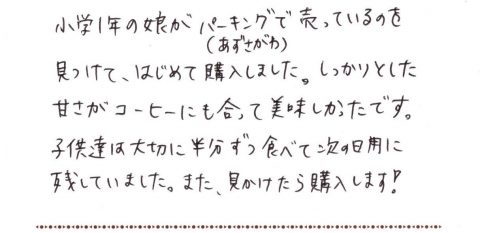 小学1年の娘が パーキングで売っているのを
(あずさがわ)
見つけて、はじめて購入しました。しっかりとした
甘さがコーヒーにも合って美味しかったです。
子供達は大切に半分ずつ食べて次の日用に
残していました。また、見かけたら購入します!